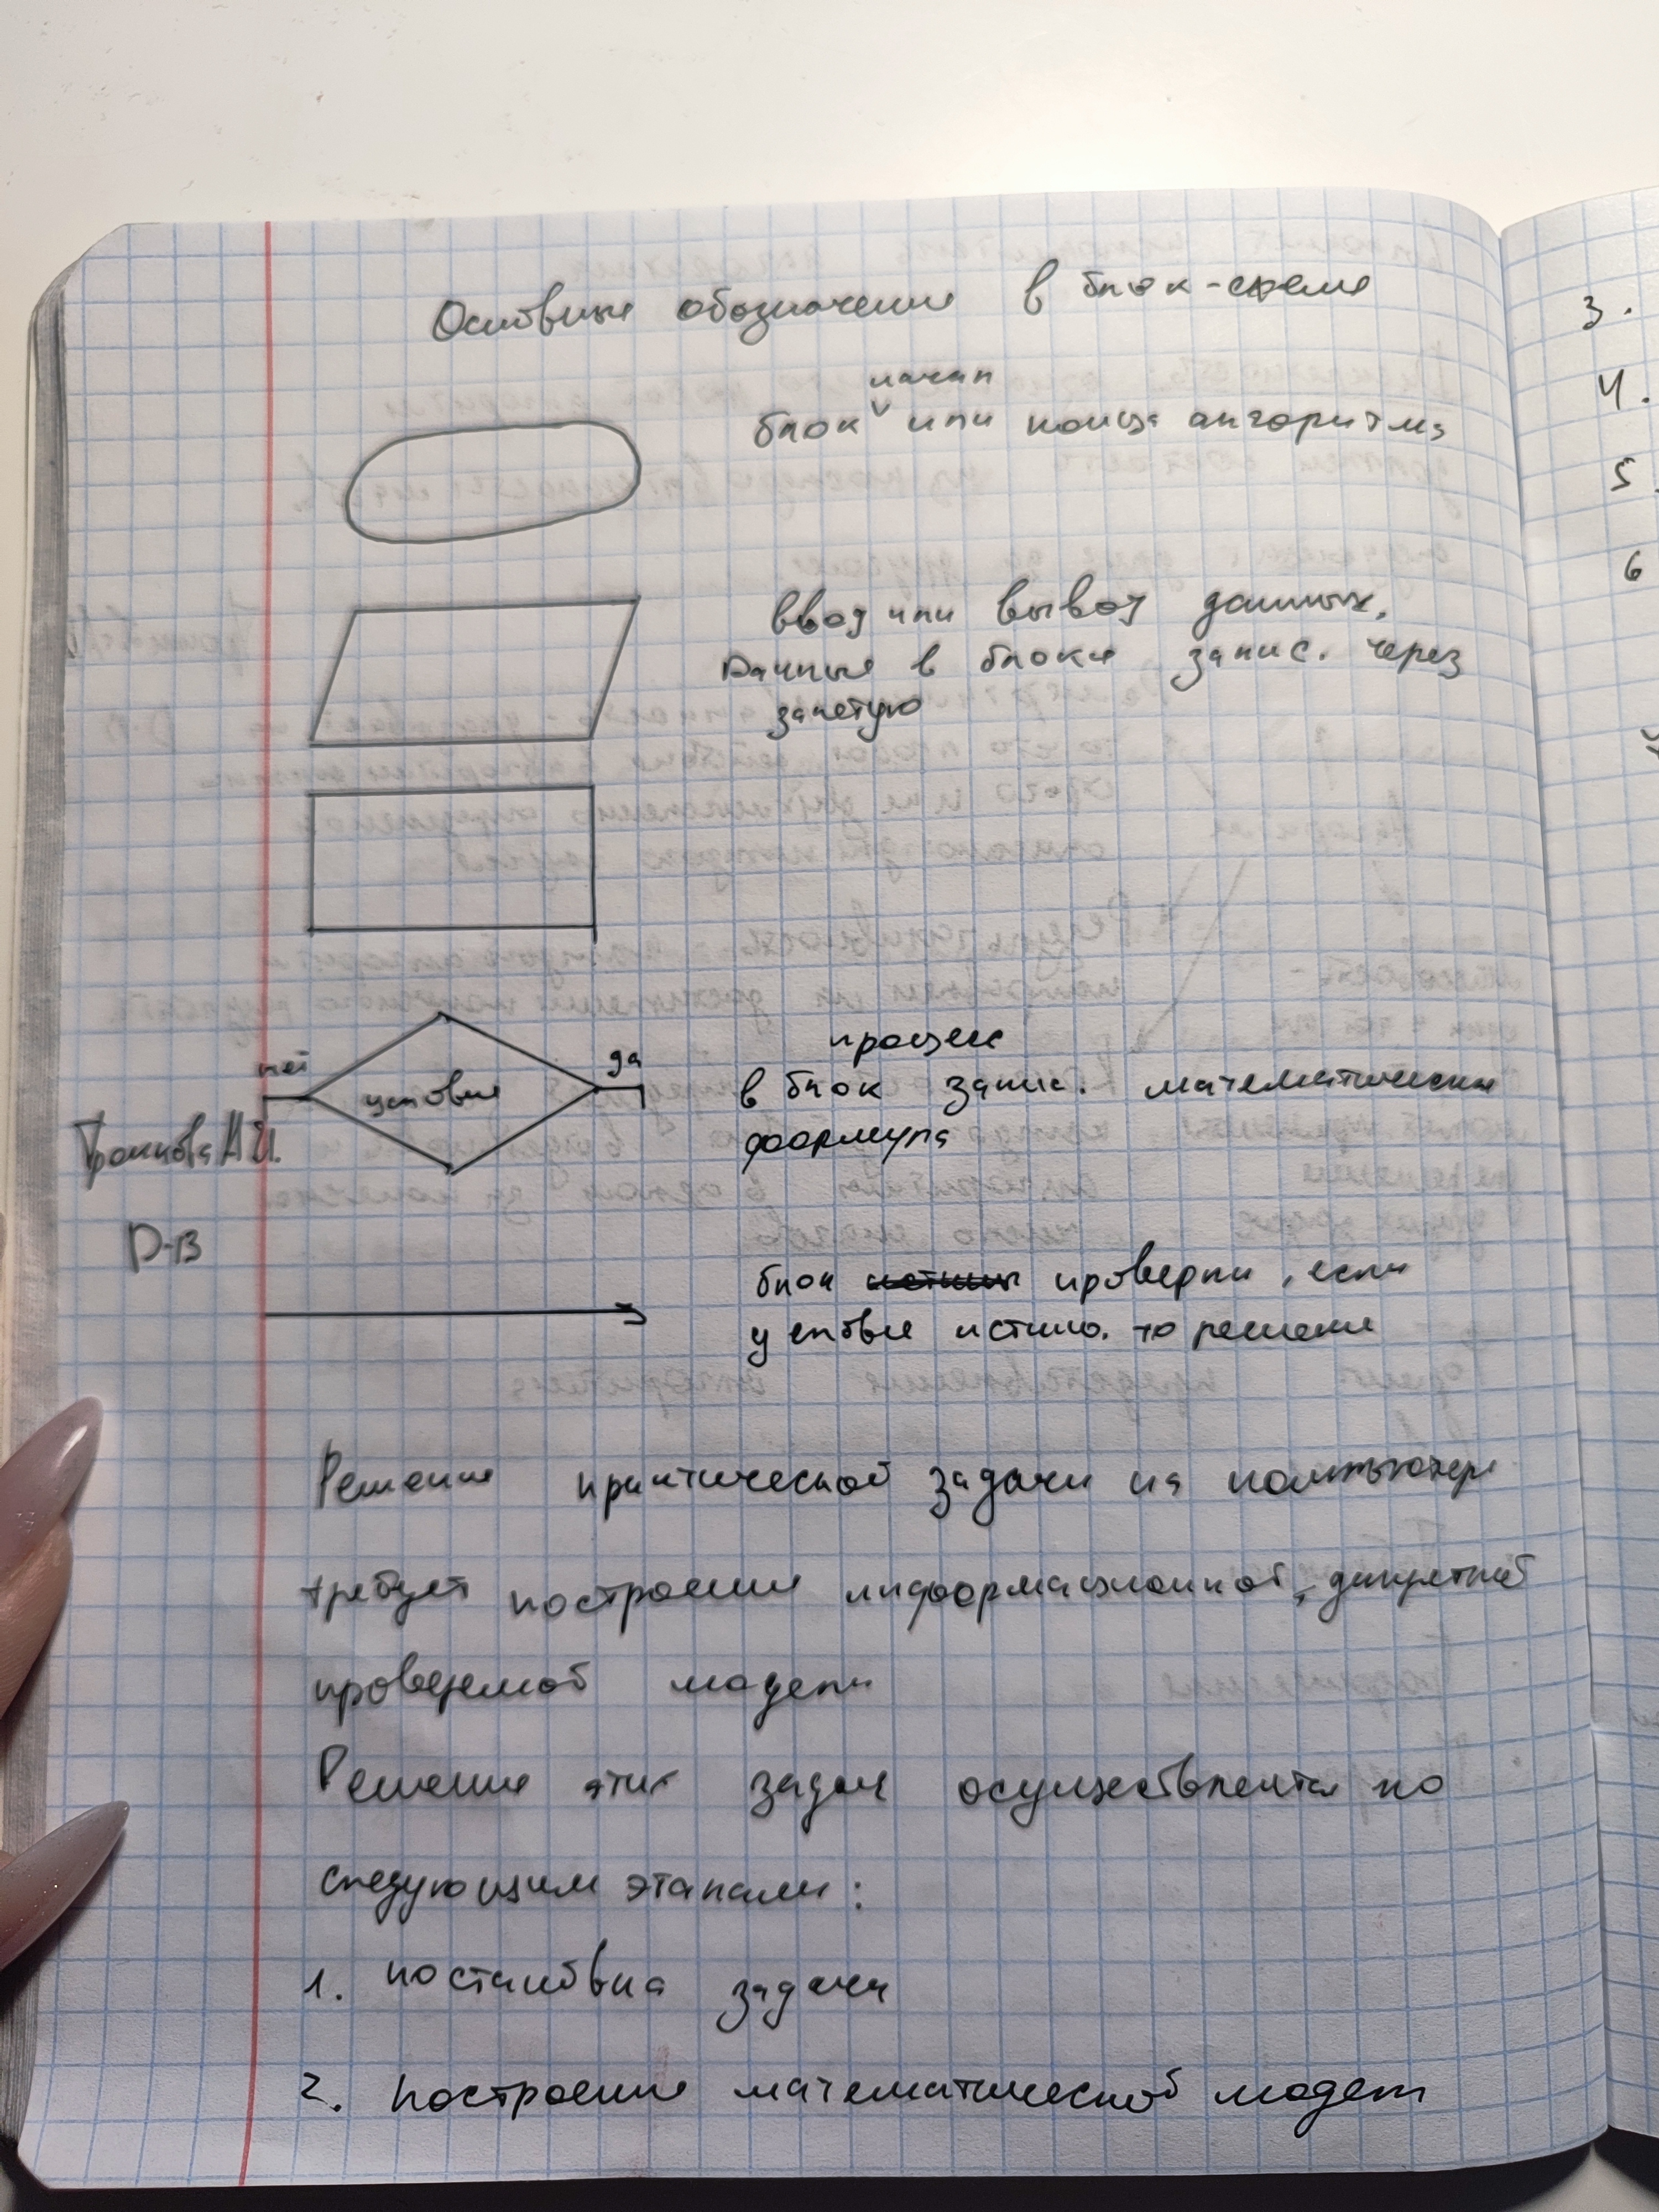 Основные обозначения в блок-схеме
начал
блок или конца алгоритма
ввод или вывод данных.
Данные в блоке запис. через
запетую
нет
да
условие
процесс
в блок запис. математическая
формула
А.И.
D-13
блок проверки, если
условие истино. то решение
Решение практической задачи на компьютере
требует построение информационной, дискретной
проверяемой модели
Решение этих задач осуществляется по
следующим этапам:
1. постановка задачи
2. построение математической модели
3.
4.
5
6